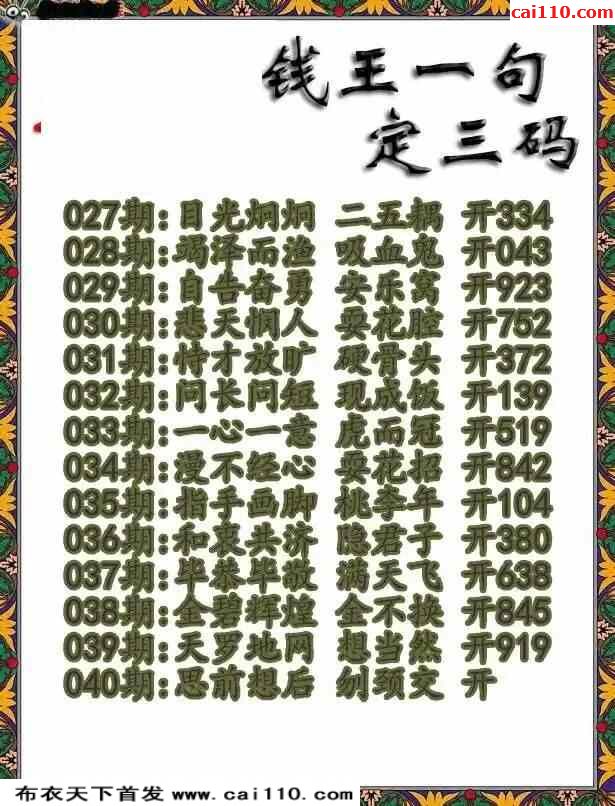 cai110.com
钱王一句
定三码
027期:目光炯炯 二五耦 开334
028期:竭泽而渔 吸血鬼 开043
029期:自告奋勇 安乐窝 开923
030期:悲天悯人 耍花腔 开752
031期:恃才放旷 硬骨头 开372
032期:问长问短 现成饭 开139
033期:一心一意 虎而冠 开519
034期:漫不经心 耍花招 开842
035期:指手画脚 桃李年 开104
036期:和衷共济 隐君子 开380
037期:毕恭毕敬 满天飞 开638
038期:金碧辉煌 全不挟 开845
039期:天罗地网 想当然 开919
040期:思前想后 刎颈交 开
布衣天下首发 www.cai110.com